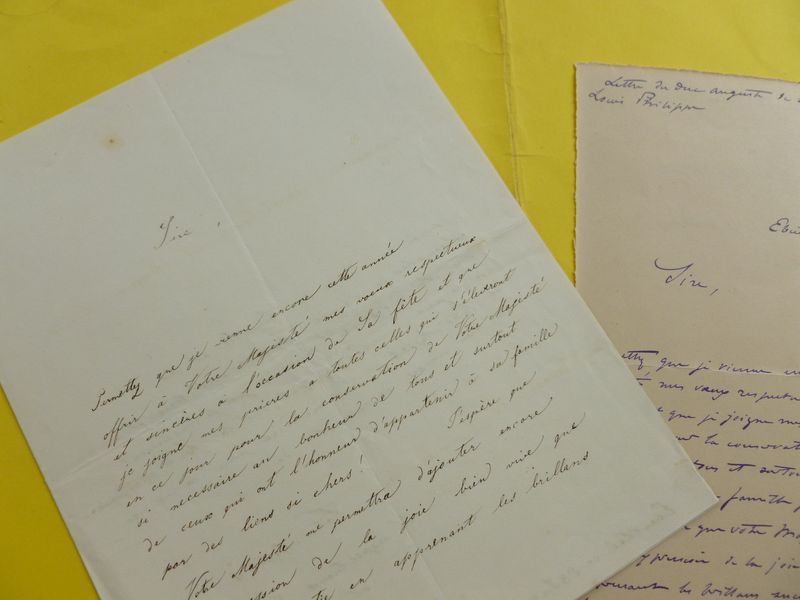 Sire,
Permettez que je vienne encore cette année
offrir à Votre Majesté mes vœux respectueux
et sincères à l'occasion de Sa fête et que
je joigne mes prieres a toutes celles qui s'éleveront
en ce jour pour la conservation de Votre Majesté
si necessaire au bonheur de tous et surtout
de ceux qui ont l'honneur d'appartenir à sa famille
par des liens si chers! J'espère que
Votre Majesté me permettra d'ajouter encore
ession de la joie bien vive que
en apprenant les brillans
Lettre du duc auguste de
Louis Philippe
Sire,
que je vienne
mes vœux
que je joigne
la
et
famille
que votre
de la joie
les brillans